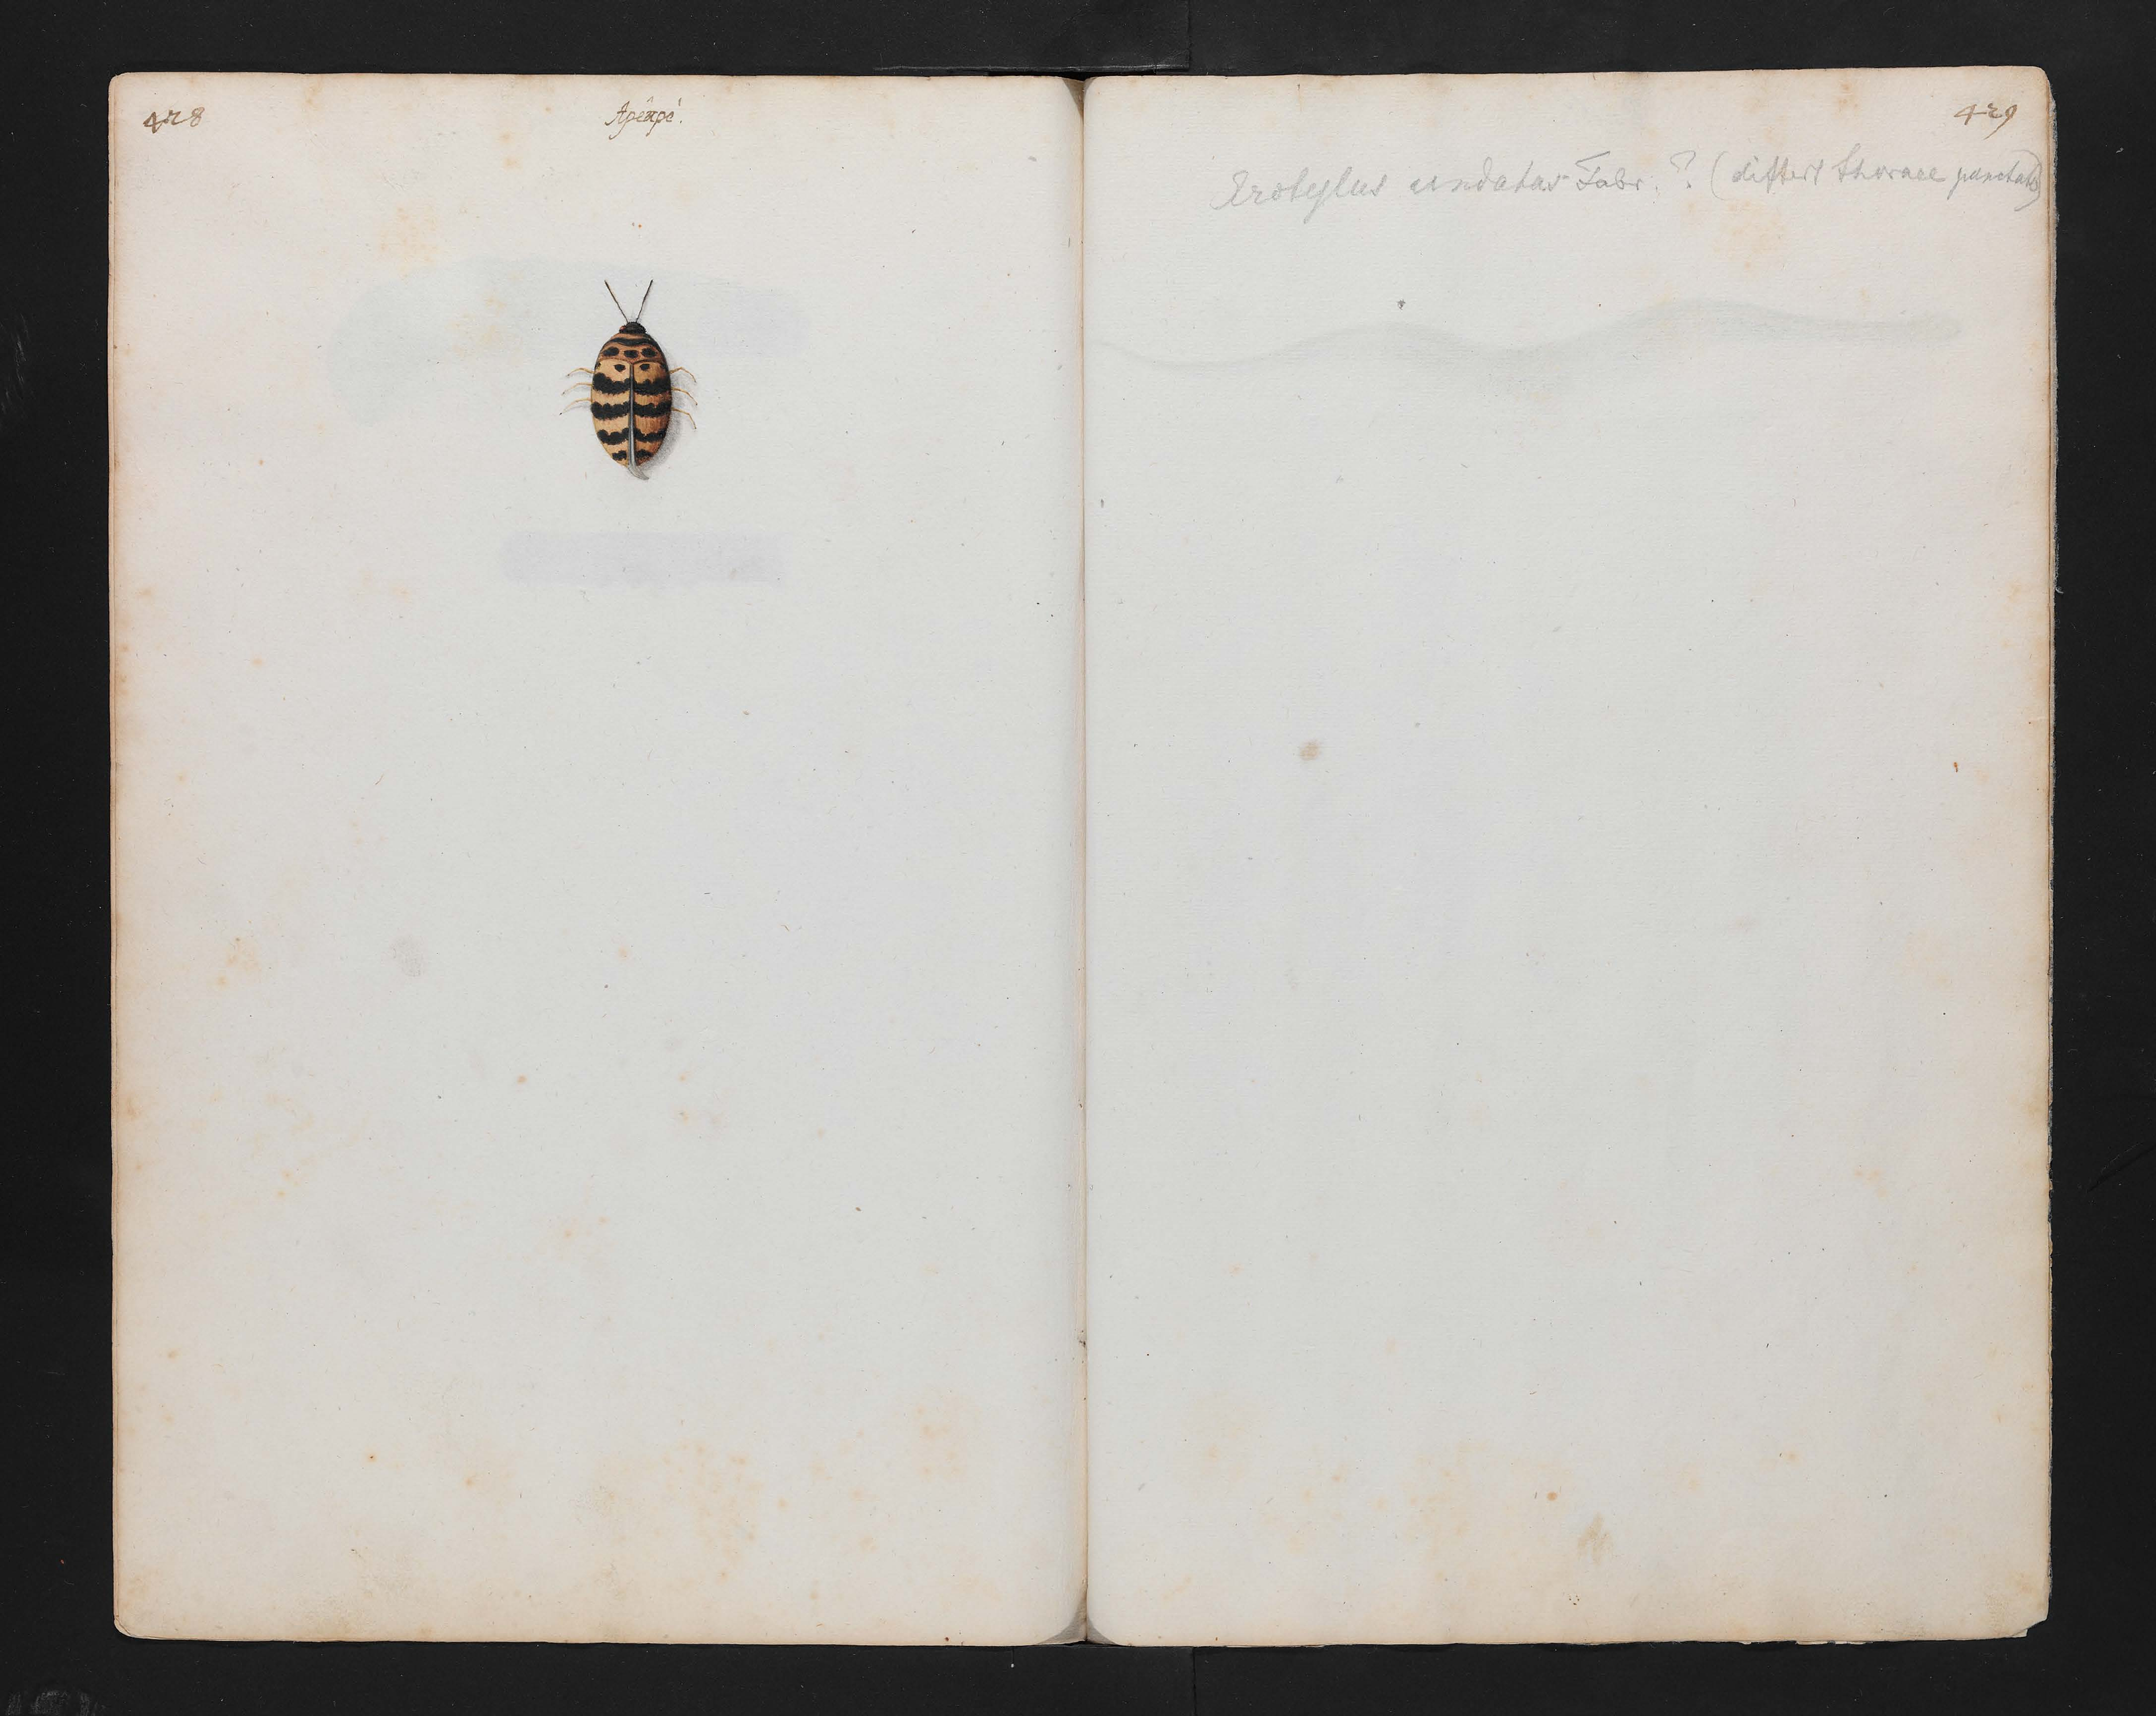 428
Apéapé.
429
Erotylus undatus Fabr. ? (differt thorace punctato)